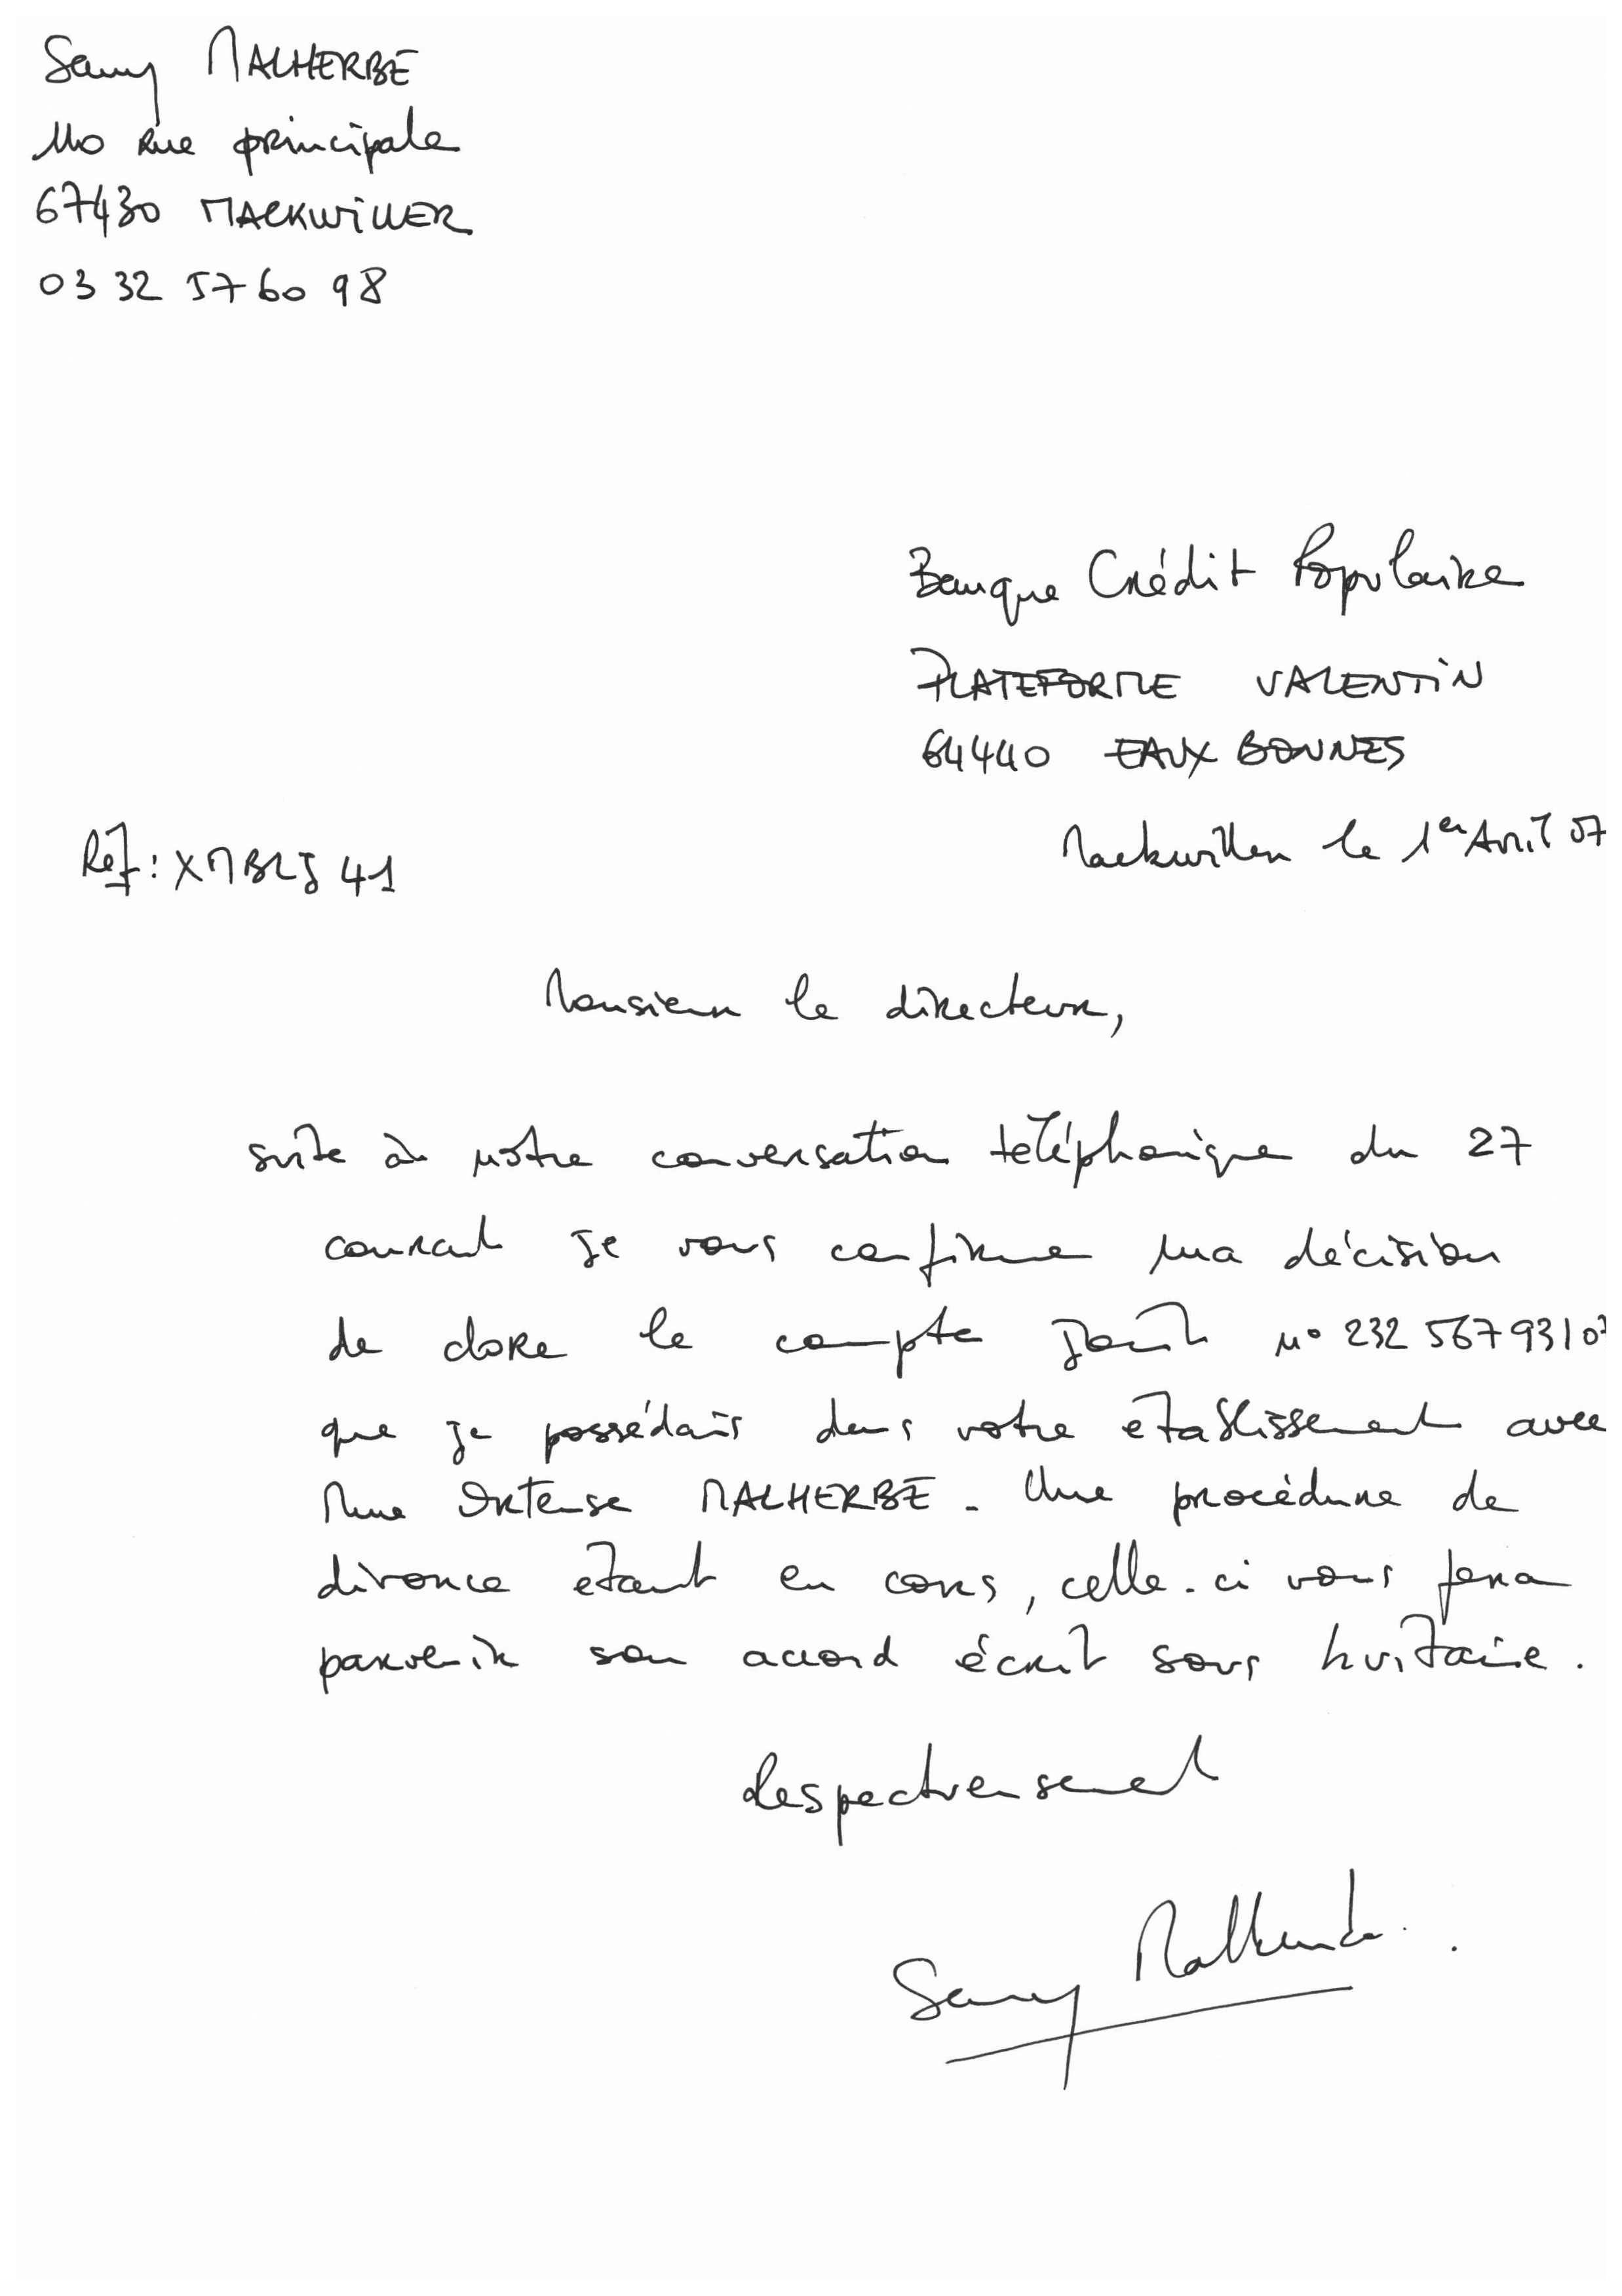 Samy MALHERBE
110 rue principale
67430 MACKWILLER
03 32 57 60 98
Banque Crédit Populaire
PLATEFORME VALENTIN
64440 EAUX BONNES
Mackwiller le 1er Avril 07
Réf : XMBLJ 41
Monsieur le directeur,
suite à notre conversation téléphonique du 27
courant je vous confirme ma décision
de clore le compte joint n° 232 567 93107
que je possédais dans votre établissement avec
Mme MALHERBE. Une procédure de
divorce étant en cours, celle-ci vous fera
parvenir son accord écrit sous huitaine.
Respectueusement
Samy Malherbe